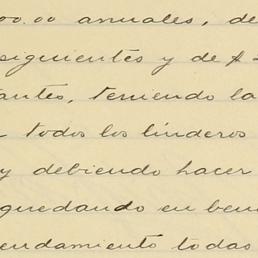 00.00 anuales, de
siguientes y de $
tantes, teniendo la
todos los linderos
y debiendo hacer
quedando en ben
endamiento todas